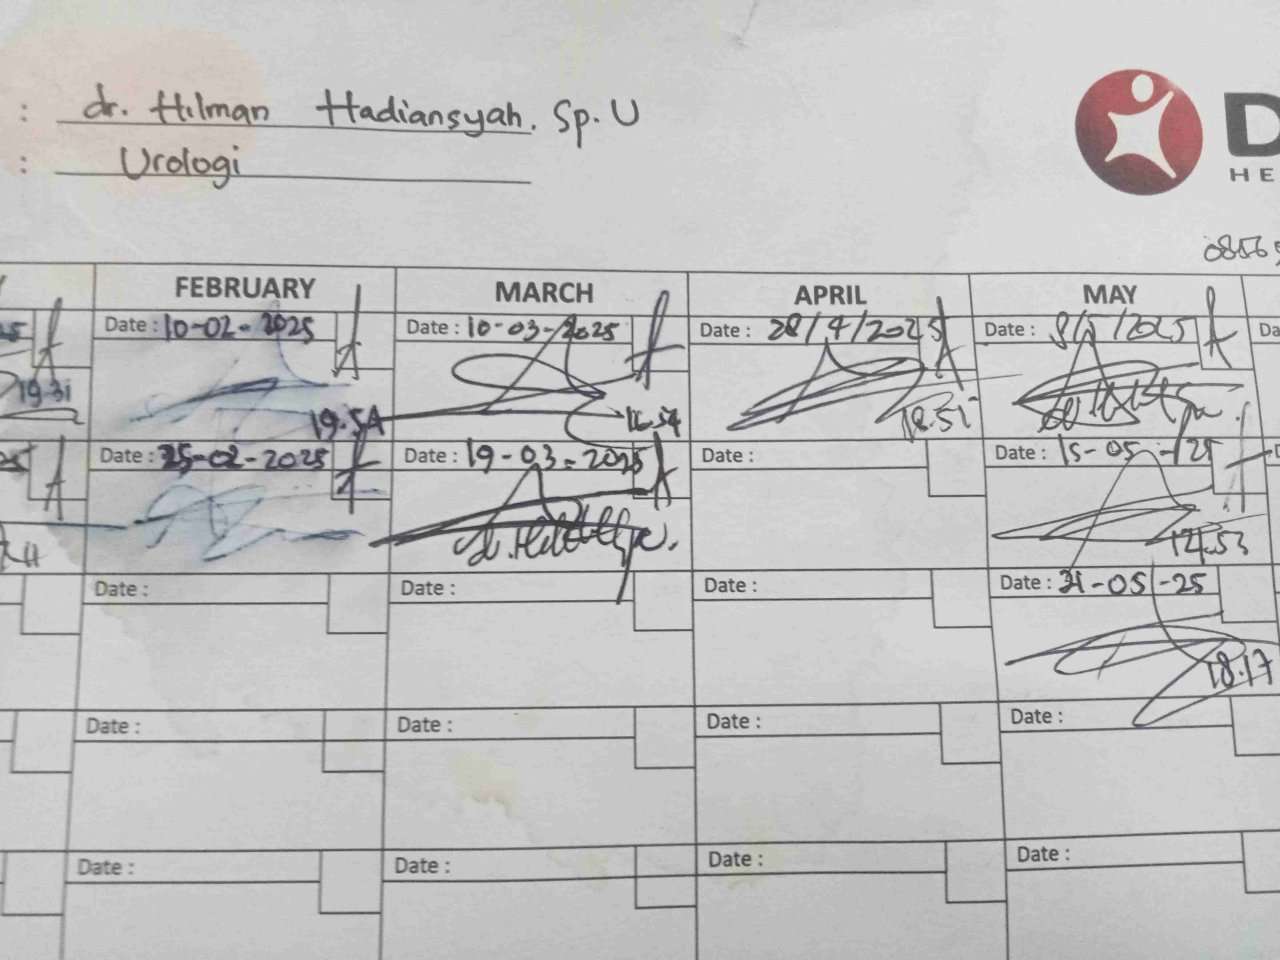 : dr. Hilman Hadiansyah. Sp. U
: Urologi
D
HE
08565
FEBRUARY MARCH APRIL MAY
Date : 10-02-2025 Date : 10-03-2025 Date : 28/4/2025 Date : 8/5/2025 Da
19.31 19.54 16.54 18.51
Date : 25-02-2025 Date : 19-03-2025 Date : Date : 15-05-25
Date : Date : Date : Date : 31-05-25
18.17
Date : Date : Date : Date :
Date : Date : Date : Date :